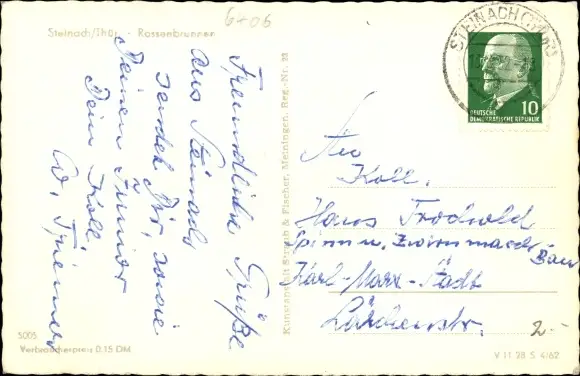 6406
Steinach/Thür. - Rossenbrunnen
Freundliche Grüße
aus Steinach
sendet Dir, sowie
Deinen Junior
Dein Koll.
W.
Kunstanstalt Straub & Fischer, Meiningen, Reg.-Nr.
5005
Verbraucherpreis 0,15 DM
STEINACH (THÜR)
10
DEUTSCHE
DEMOKRATISCHE REPUBLIK
An
Koll.
Hans
Spinn u. Zwirnmasch-
Bau
Karl-Marx-Stadt
Lärchenstr.
2.-
V 11 28 S 4/62